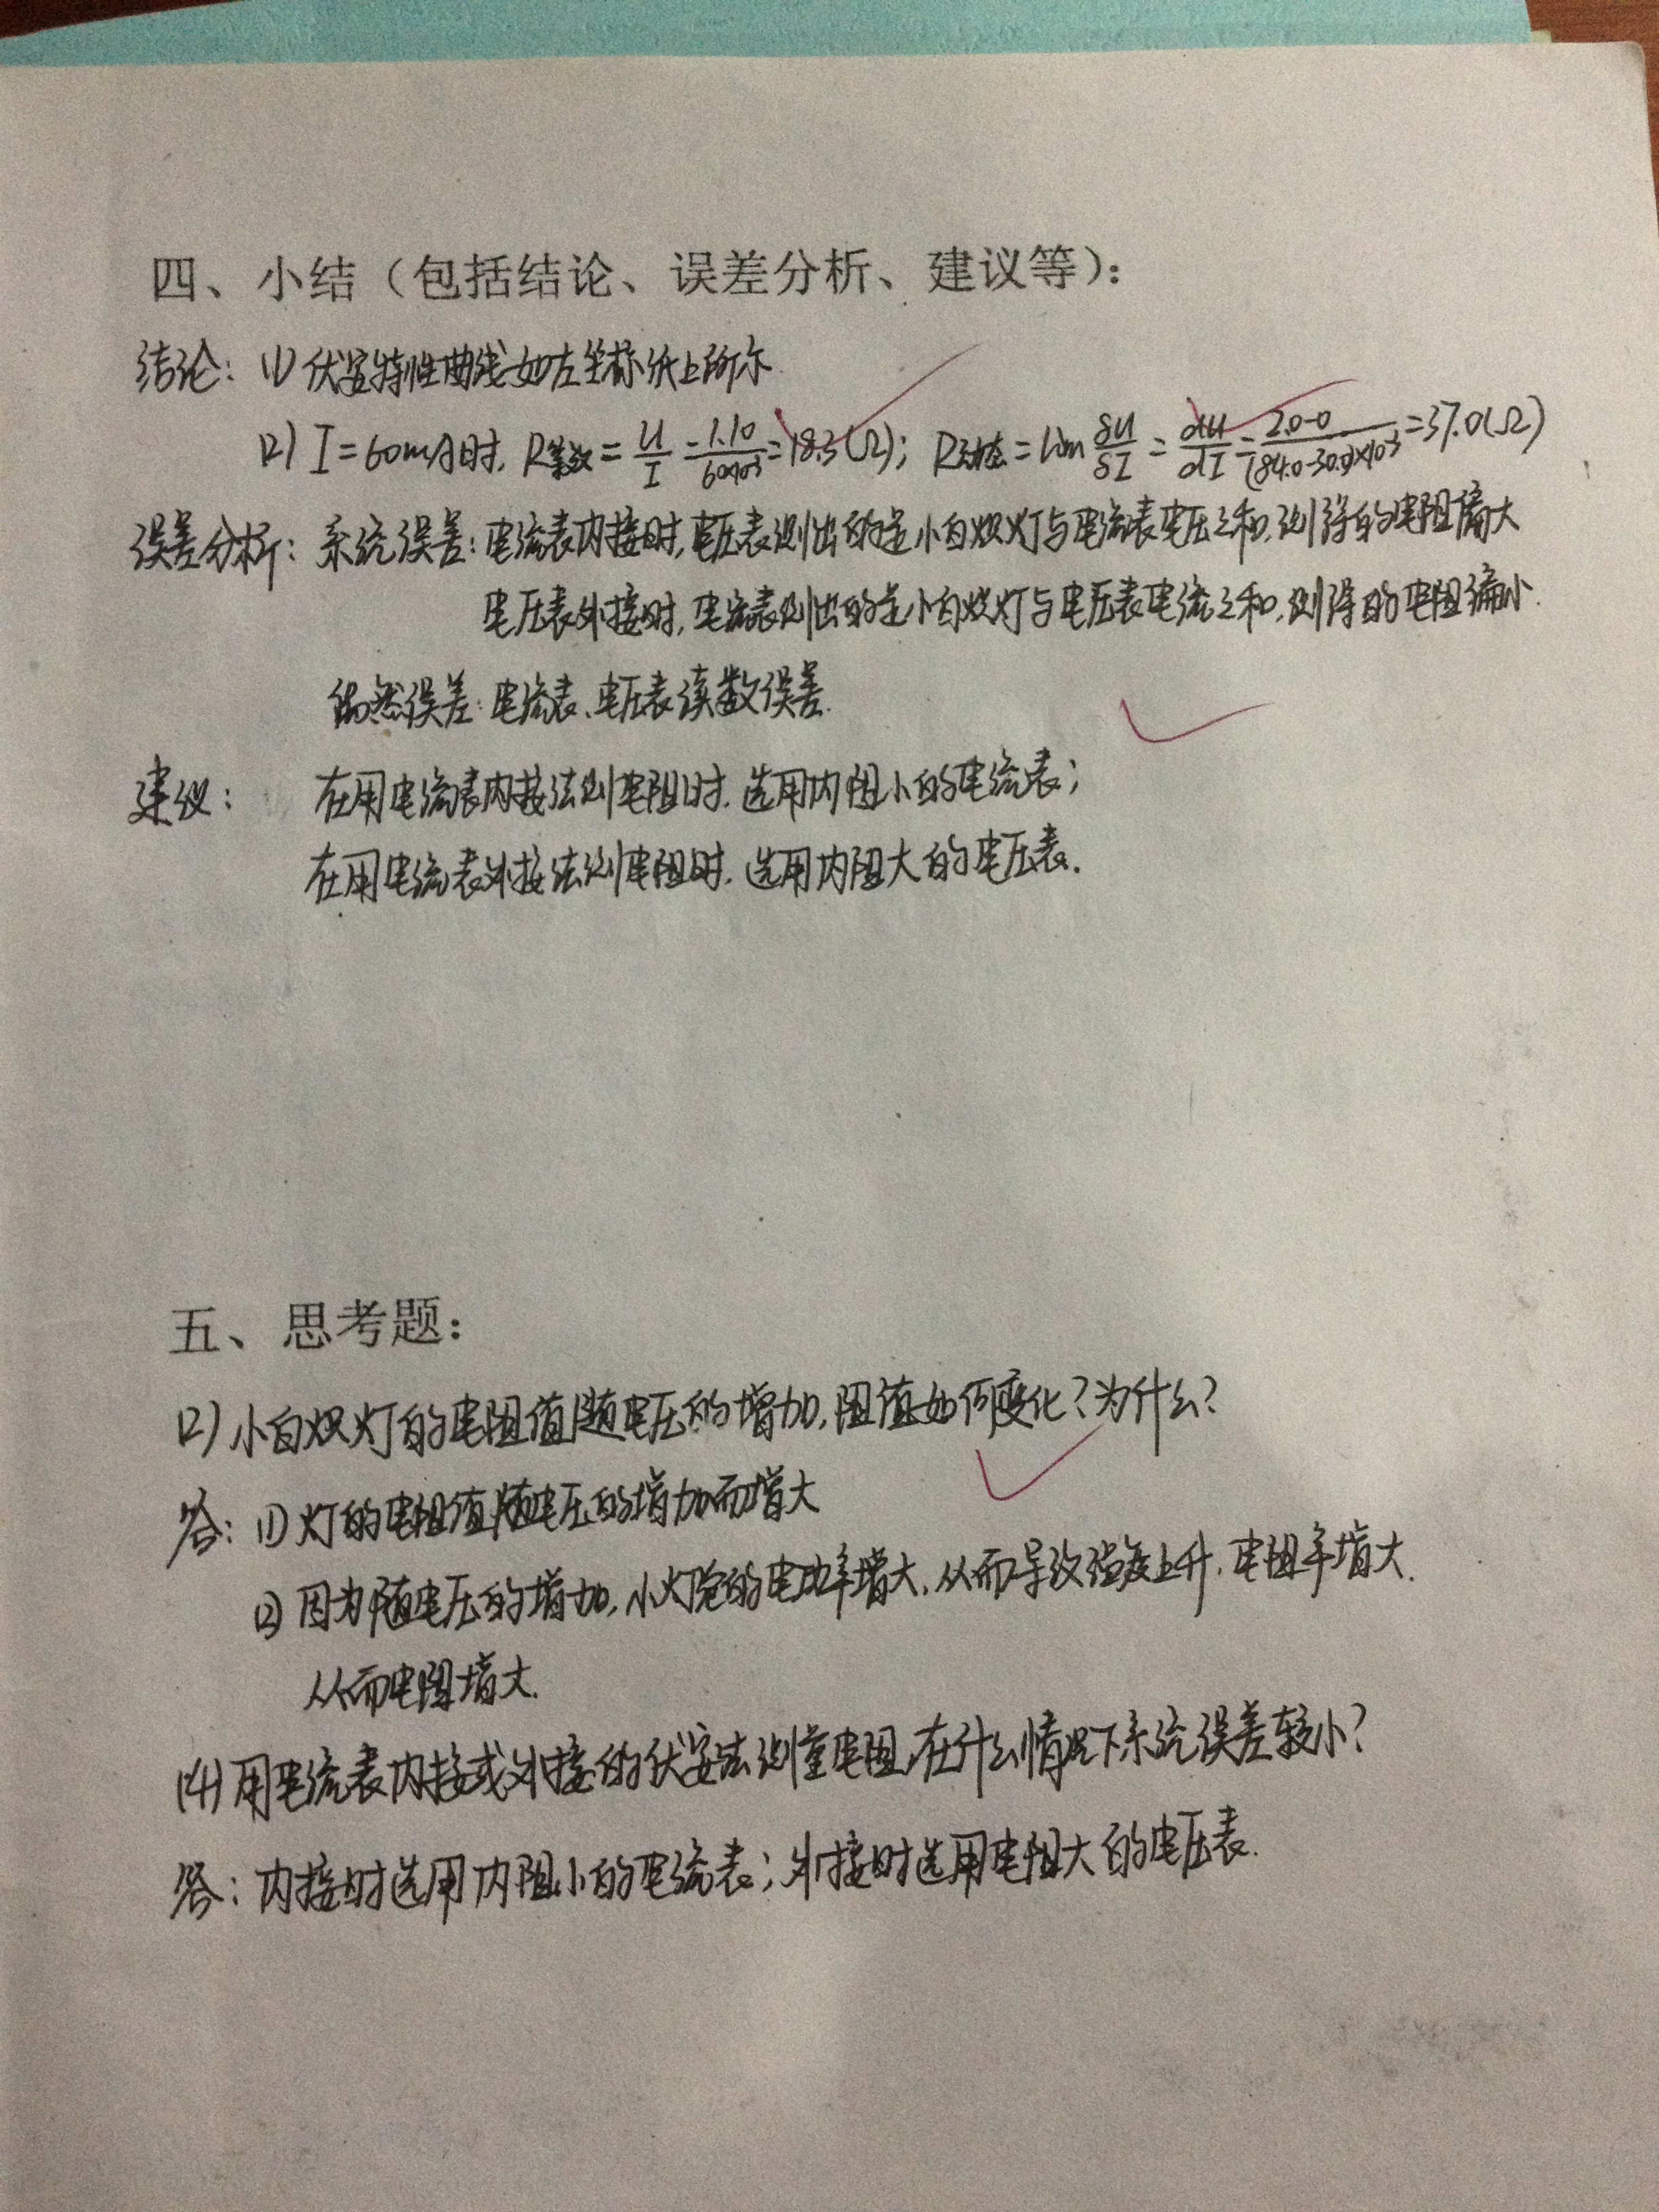 四、小结（包括结论、误差分析、建议等）：
结论：(1) 伏安特性曲线如左坐标纸上所示
(2) I=60mA时, R等效=U/I=1.10/60×10⁻³=18.3(Ω); R动态=lim δU/δI=dU/dI=2.0-0/(84.0-30.0)×10⁻³=37.0(Ω)
误差分析：系统误差：电流表内接时,电压表测出的是小白炽灯与电流表电压之和,测得的电阻偏大
电压表外接时,电流表测出的是小白炽灯与电压表电流之和,测得的电阻偏小.
偶然误差：电流表、电压表读数误差.
建议：在用电流表内接法测电阻时.选用内阻小的电流表；
在用电流表外接法测电阻时.选用内阻大的电压表.
五、思考题：
(2) 小白炽灯的电阻值随电压的增加,阻值如何变化？为什么？
答：(1) 灯的电阻值随电压的增加而增大
(2) 因为随电压的增加,小灯泡的电功率增大,从而导致温度上升.电阻率增大.
从而电阻增大.
(4) 用电流表内接或外接的伏安法测量电阻,在什么情况下系统误差较小？
答：内接时选用内阻小的电流表；外接时选用电阻大的电压表.